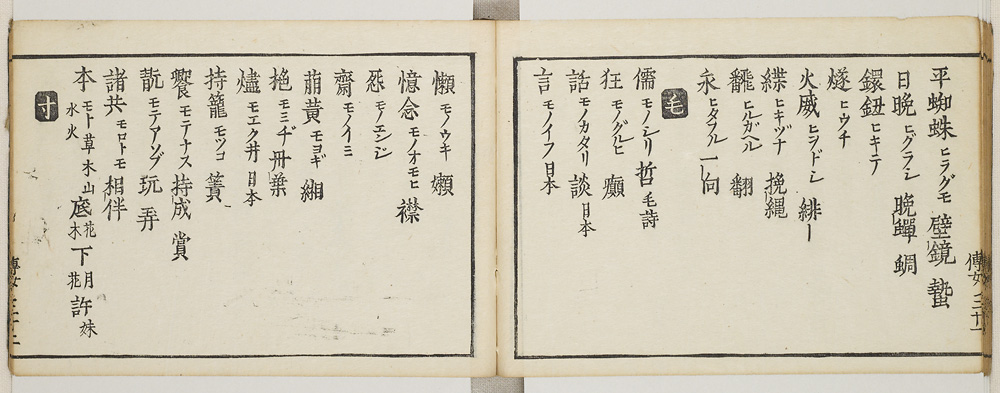 平蜘蛛 ヒラグモ 壁鏡 蟄
日晩 ヒグラシ 晩蟬 蜩
鐶鈕 ヒキテ
燧 ヒウチ
火威 ヒヲドシ 緋ー
緤 ヒキヅナ 挽縄
飜 ヒルガヘル 翻
永 ヒタフル 一向
毛
儒 モノシリ 哲 毛詩
狂 モノグルヒ 癲
話 モノカタリ 談 日本
言 モノイフ 日本
傳女 三十一
懶 モノウキ 嬾
憶念 モノオモヒ 襟
怨 モノエンジ
齋 モノイミ
萠黄 モヨギ 緗
栬 モミヂ 丹葉
燼 モエクヰ 日本
持籠 モツコ 簣
饗 モテナス 持成 賞
翫 モテアソブ 玩 弄
諸共 モロトモ 相伴
本 モト 草木山水火 底 花木 下 月花 許 妹
寸
傳女 三十二